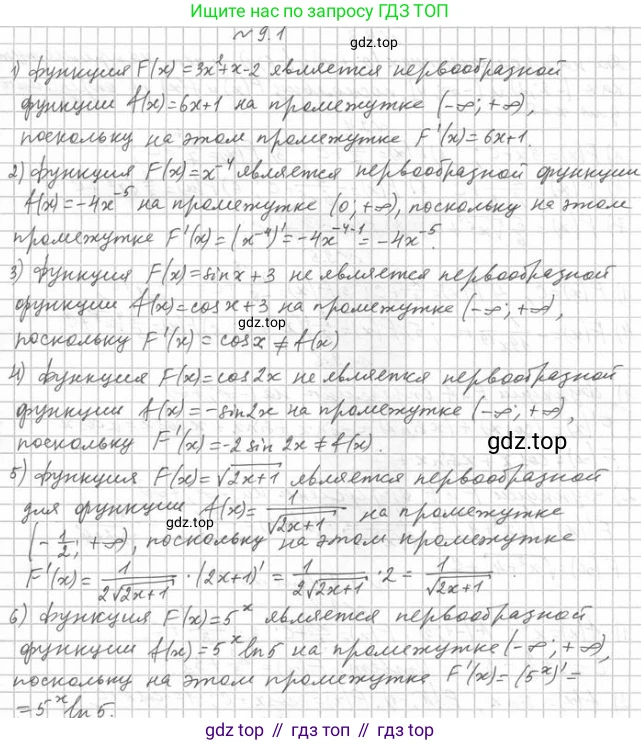 Ищите нас по запросу ГДЗ ТОП
№ 9.1
gdz.top
1) функция F(x) = 3x²+x-2 является первообразной
функции f(x) = 6x+1 на промежутке (-∞; +∞),
поскольку на этом промежутке F'(x) = 6x+1.
gdz.top
2) функция F(x) = x⁻⁴ является первообразной функции
f(x) = -4x⁻⁵ на промежутке (0; +∞), поскольку на этом
промежутке F'(x) = (x⁻⁴)' = -4x⁻⁴⁻¹ = -4x⁻⁵.
3) функция F(x) = sinx + 3 не является первообразной
функции f(x) = cosx + 3 на промежутке (-∞; +∞),
gdz.top
поскольку F'(x) = cosx ≠ f(x)
4) функция F(x) = cos2x не является первообразной
функции f(x) = -sin2x на промежутке (-∞; +∞),
поскольку F'(x) = -2 sin 2x ≠ f(x).
gdz.top
5) функция F(x) = √(2x+1) является первообразной
для функции f(x) = 1/√(2x+1) на промежутке
gdz.top
(-1/2; +∞), поскольку на этом промежутке
F'(x) = 1/(2√(2x+1)) · (2x+1)' = 1/(2√(2x+1)) · 2 = 1/√(2x+1).
6) функция F(x) = 5ˣ является первообразной
функции f(x) = 5ˣ ln5 на промежутке (-∞; +∞),
поскольку на этом промежутке F'(x) = (5ˣ)' =
= 5ˣ ln 5.
gdz top // гдз топ // gdz.top